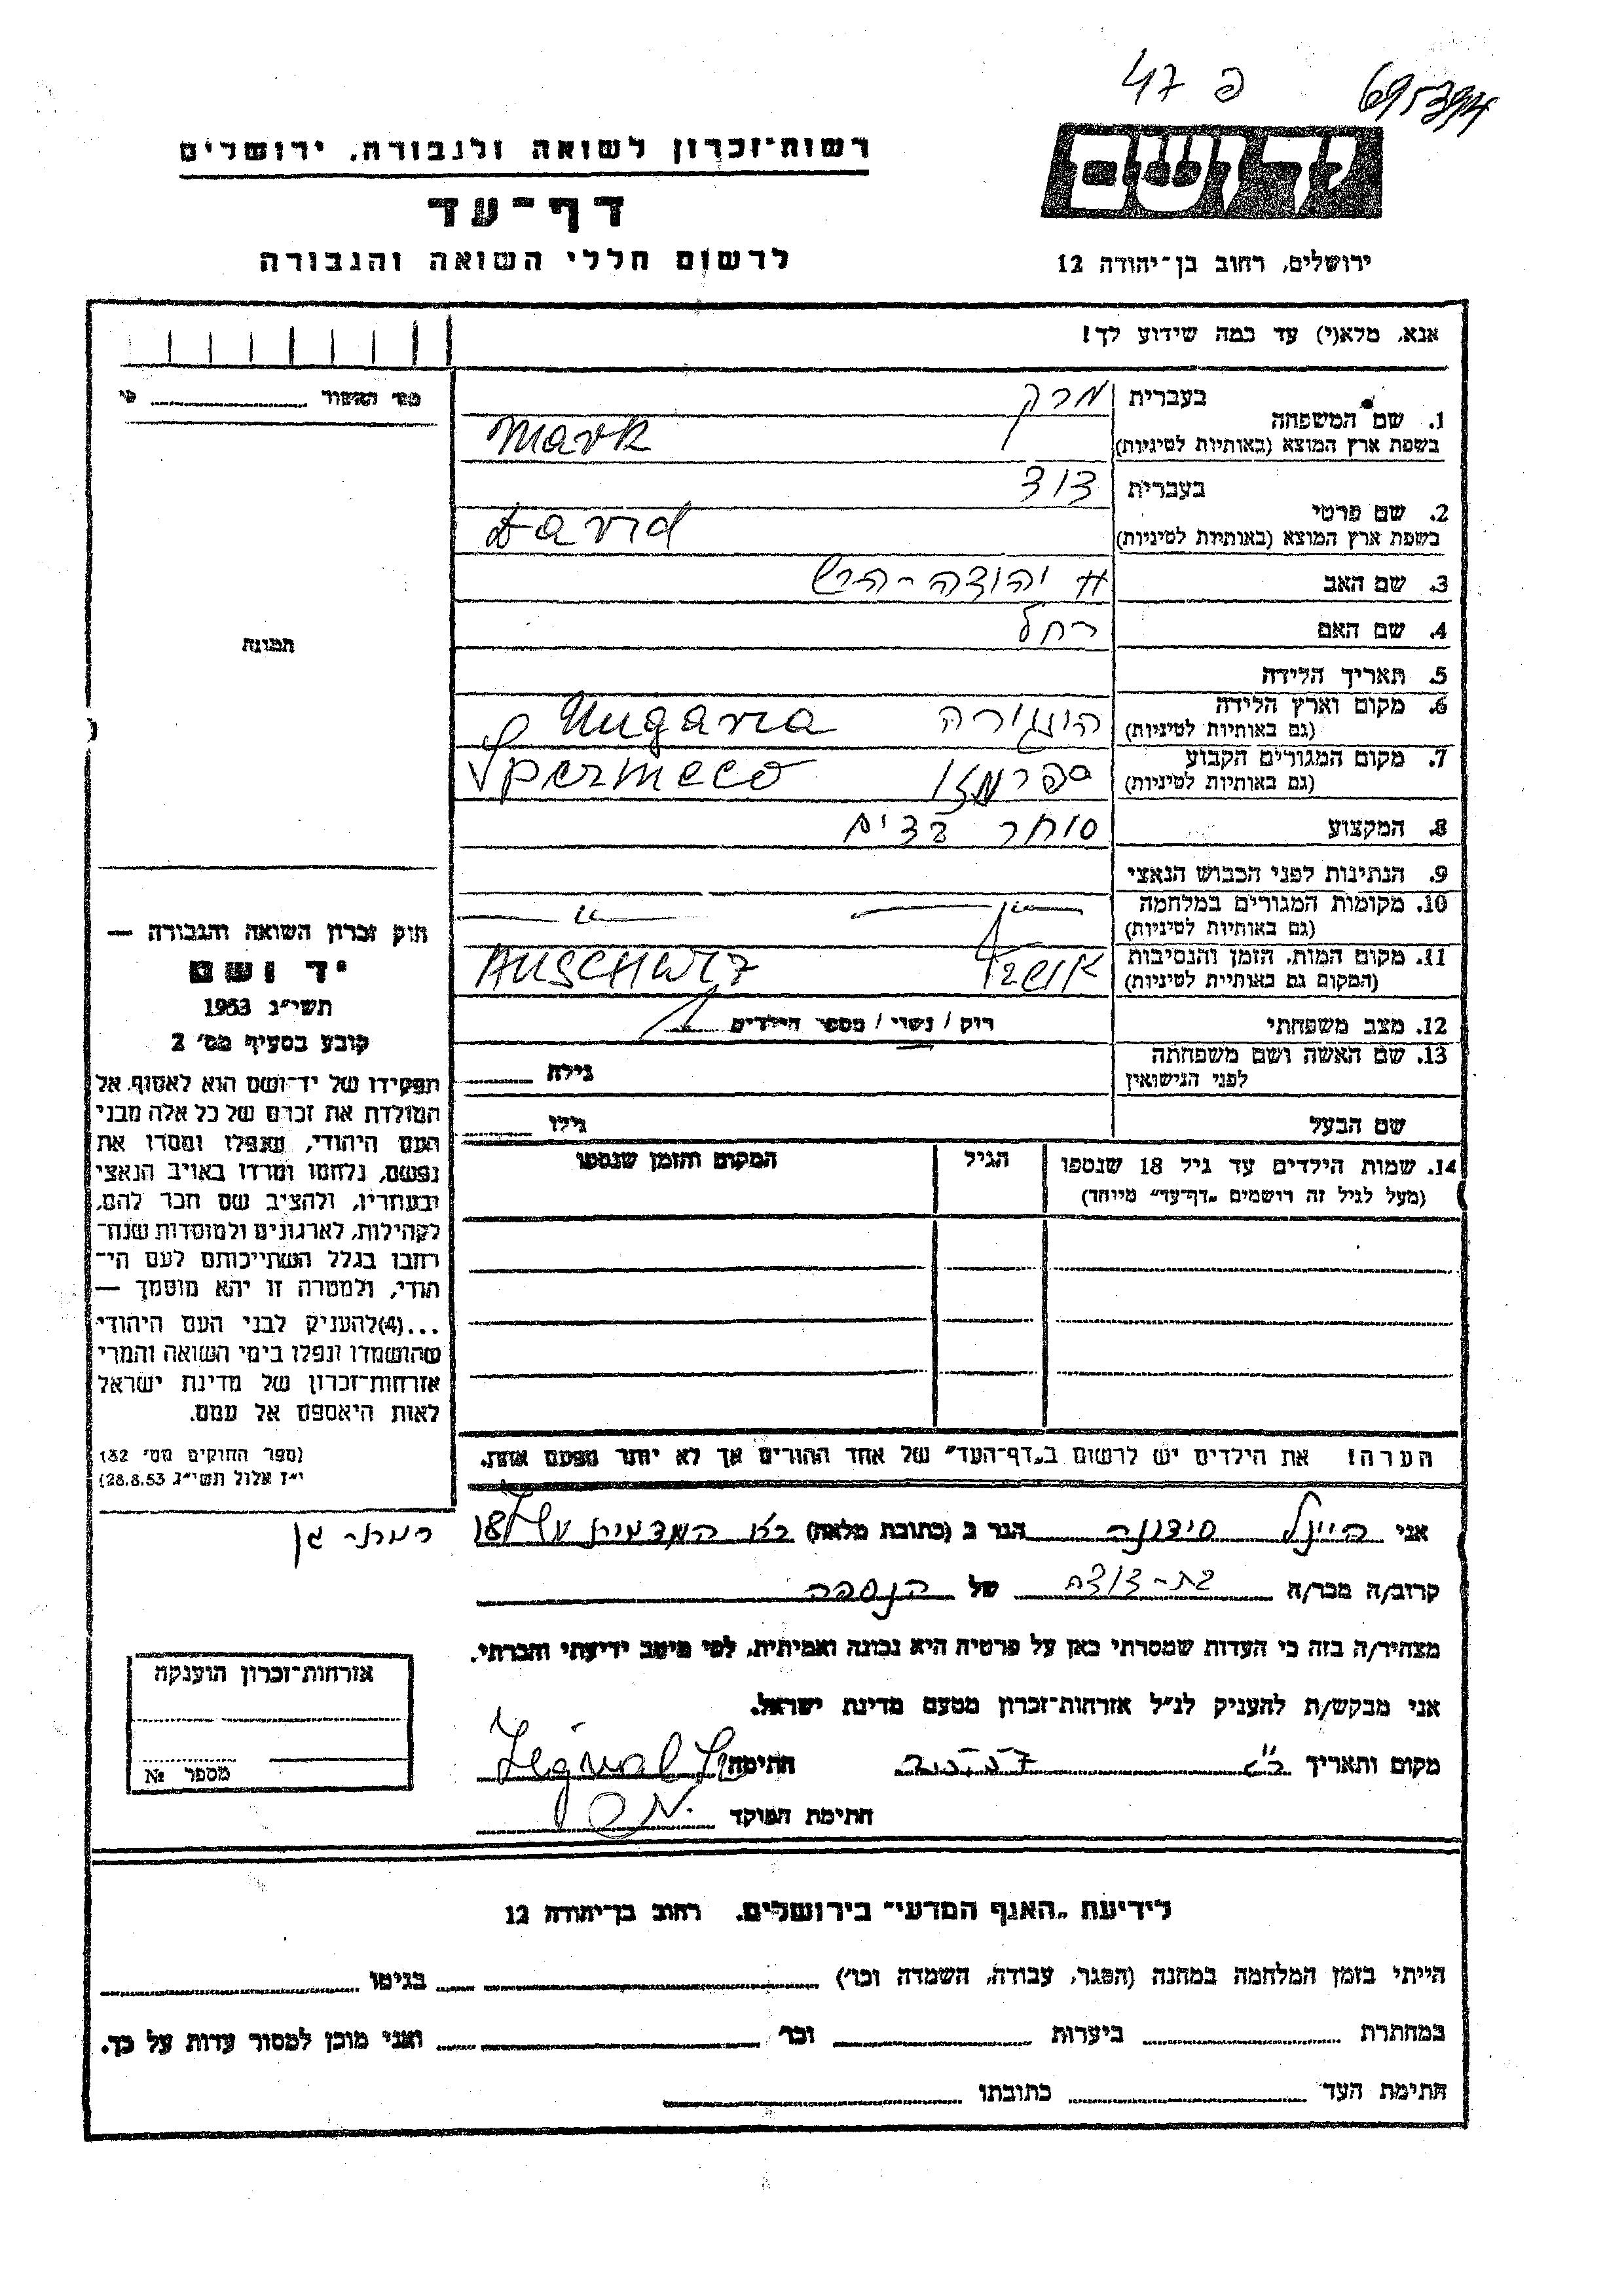 47 פ
695394
רשות־זכרון לשואה ולגבורה, ירושלים
דף־עד
לרשום חללי השואה והגבורה
יד ושם
ירושלים, רחוב בן־יהודה 12
אנא, מלא(י) עד כמה שידוע לך!
מס' האשור
תמונה
בעברית מרק
1. שם המשפחה
בשפת ארץ המוצא (באותיות לטיניות) Mark
בעברית דוד
2. שם פרטי
בשפת ארץ המוצא (באותיות לטיניות) David
3. שם האב יהודה - הרש
4. שם האם רחל
5. תאריך הלידה
6. מקום וארץ הלידה הונגריה Hugaria
(גם באותיות לטיניות)
7. מקום המגורים הקבוע Spermeco
(גם באותיות לטיניות)
8. המקצוע סוחר בדים
9. הנתינות לפני הכבוש הנאצי
10. מקומות המגורים במלחמה — " —
(גם באותיות לטיניות)
11. מקום המות, הזמן והנסיבות AUSCHWIZ
(המקום גם באותיות לטיניות)
12. מצב משפחתי רוק / נשוי / מספר הילדים
13. שם האשה ושם משפחתה
לפני הנישואין גילה
שם הבעל גילו
14. שמות הילדים עד גיל 18 שנספו הגיל המקום והזמן שנספו
(מעל לגיל זה רושמים „דף־עד" מיוחד)
חוק זכרון השואה והגבורה —
יד ושם
תשי"ג 1953
קובע בסעיף מס' 2
תפקידו של יד־ושם הוא לאסוף אל
המולדת את זכרם של כל אלה מבני
העם היהודי, שנפלו ומסרו את
נפשם, נלחמו ומרדו באויב הנאצי
ובעוזריו, ולהציב שם וזכר להם,
לקהילות, לארגונים ולמוסדות שנח־
רבו בגלל השתייכותם לעם הי־
הודי, ולמטרה זו יהא מוסמך —
...(4)להעניק לבני העם היהודי
שהושמדו ונפלו בימי השואה והמרי
אזרחות־זכרון של מדינת ישראל
לאות היאספם אל עמם.
(ספר החוקים מס' 132
י"ז אלול תשי"ג 28.8.53)
הערה! את הילדים יש לרשום ב„דף־העד" של אחד ההורים אך לא יותר מפעם אחת.
אני סידונה הגר ב (כתובת מלאה) רמת-גן
קרוב/ה מכר/ה בת-דודה של הנספה
מצהיר/ה בזה כי העדות שמסרתי כאן על פרטיה היא נכונה ואמיתית, לפי מיטב ידיעתי והכרתי.
אני מבקש/ת להעניק לנ"ל אזרחות־זכרון מטעם מדינת ישראל.
מקום ותאריך חתימה
חתימת הפוקד
אזרחות־זכרון הוענקה
מספר №
לידיעת „האגף המדעי" בירושלים. רחוב בן־יהודה 12
הייתי בזמן המלחמה במחנה (הסגר, עבודה, השמדה וכו') בגיטו
במחתרת ביערות וכו' ואני מוכן למסור עדות על כך.
חתימת העד כתובתו